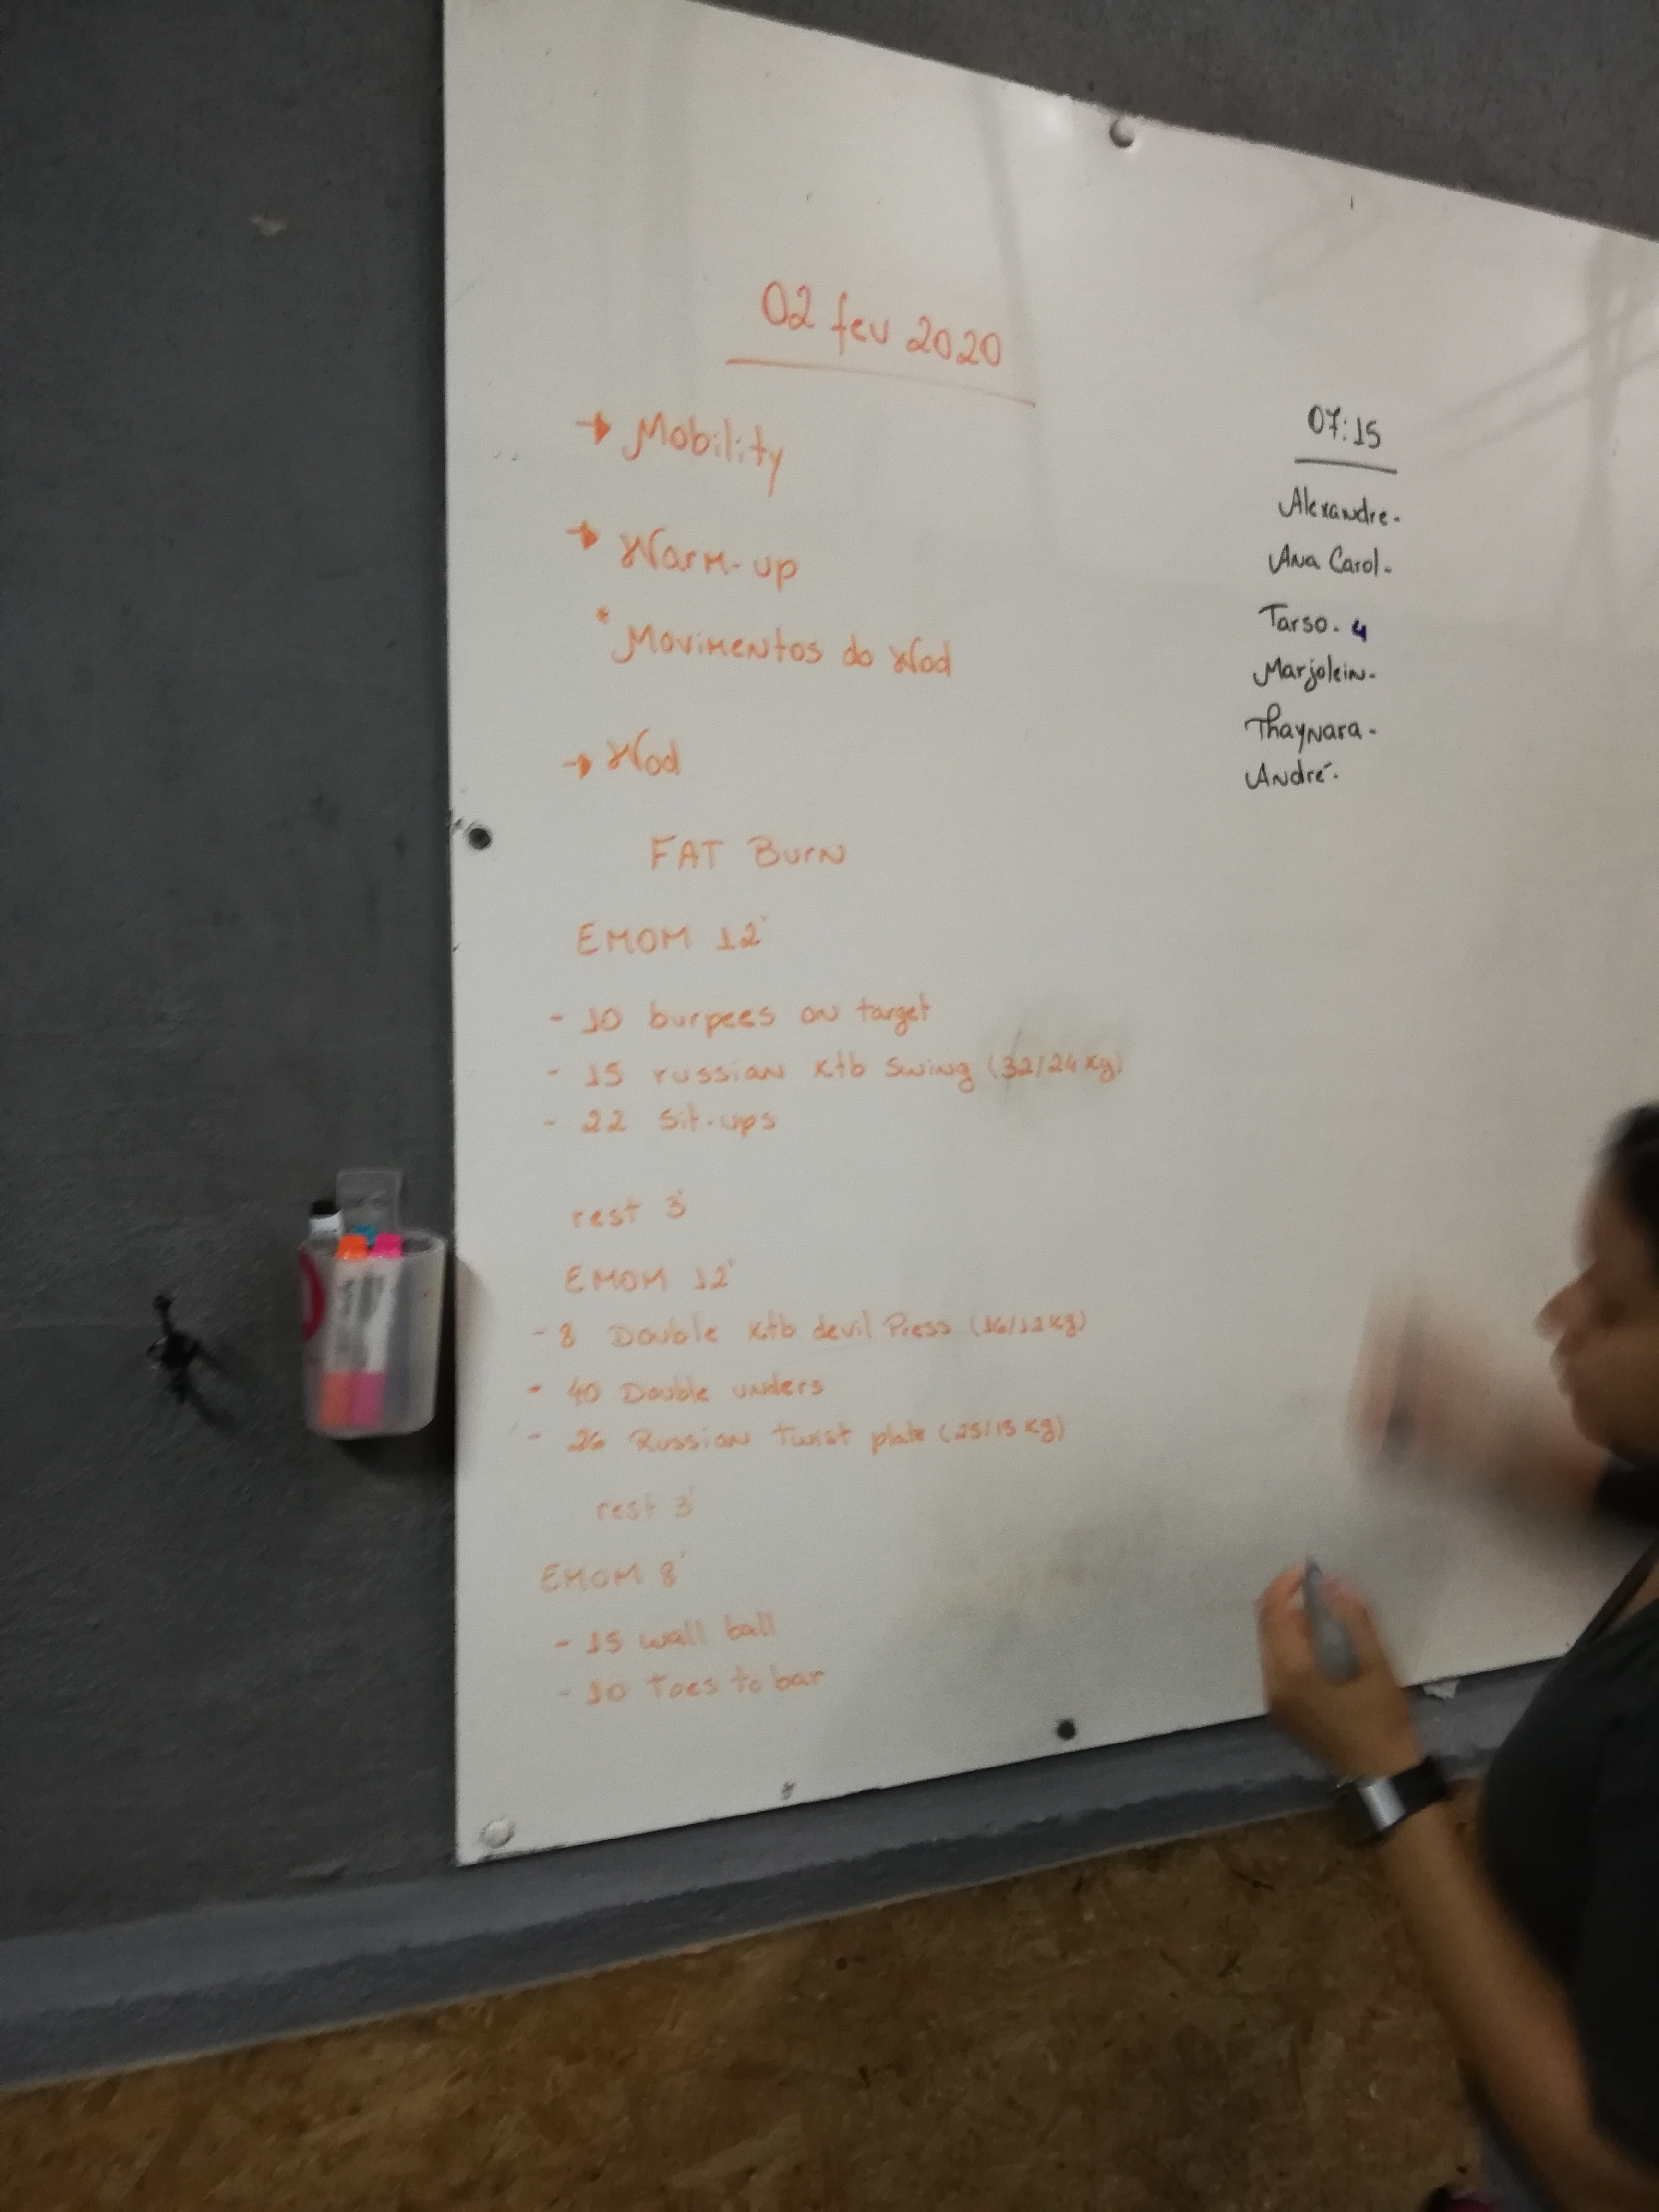 02 fev 2020
→ Mobility
→ Warm-up
* Movimentos do Wod
→ Wod
FAT Burn
EMOM 12'
- 10 burpees on target
- 15 russian ktb swing (32/24 kg)
- 22 Sit-ups
rest 3'
EMOM 12'
- 8 Double ktb devil Press (16/12 kg)
- 40 Double unders
- 26 Russian Twist plate (25/15 kg)
rest 3'
EMOM 8'
- 15 wall ball
- 10 Toes to bar
07:15
Alexandre -
Ana Carol -
Tarso - 4
Marjolein -
Thaynara -
André -